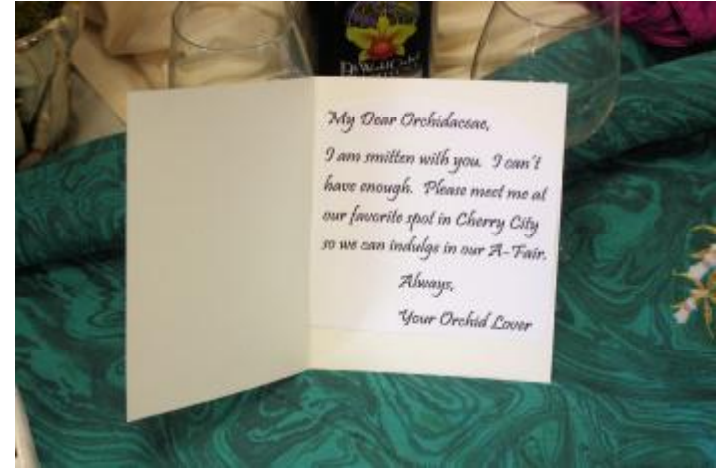 My Dear Orchidaceae,
I am smitten with you. I can't
have enough. Please meet me at
our favorite spot in Cherry City
so we can indulge in our A-Fair.
Always,
Your Orchid Lover